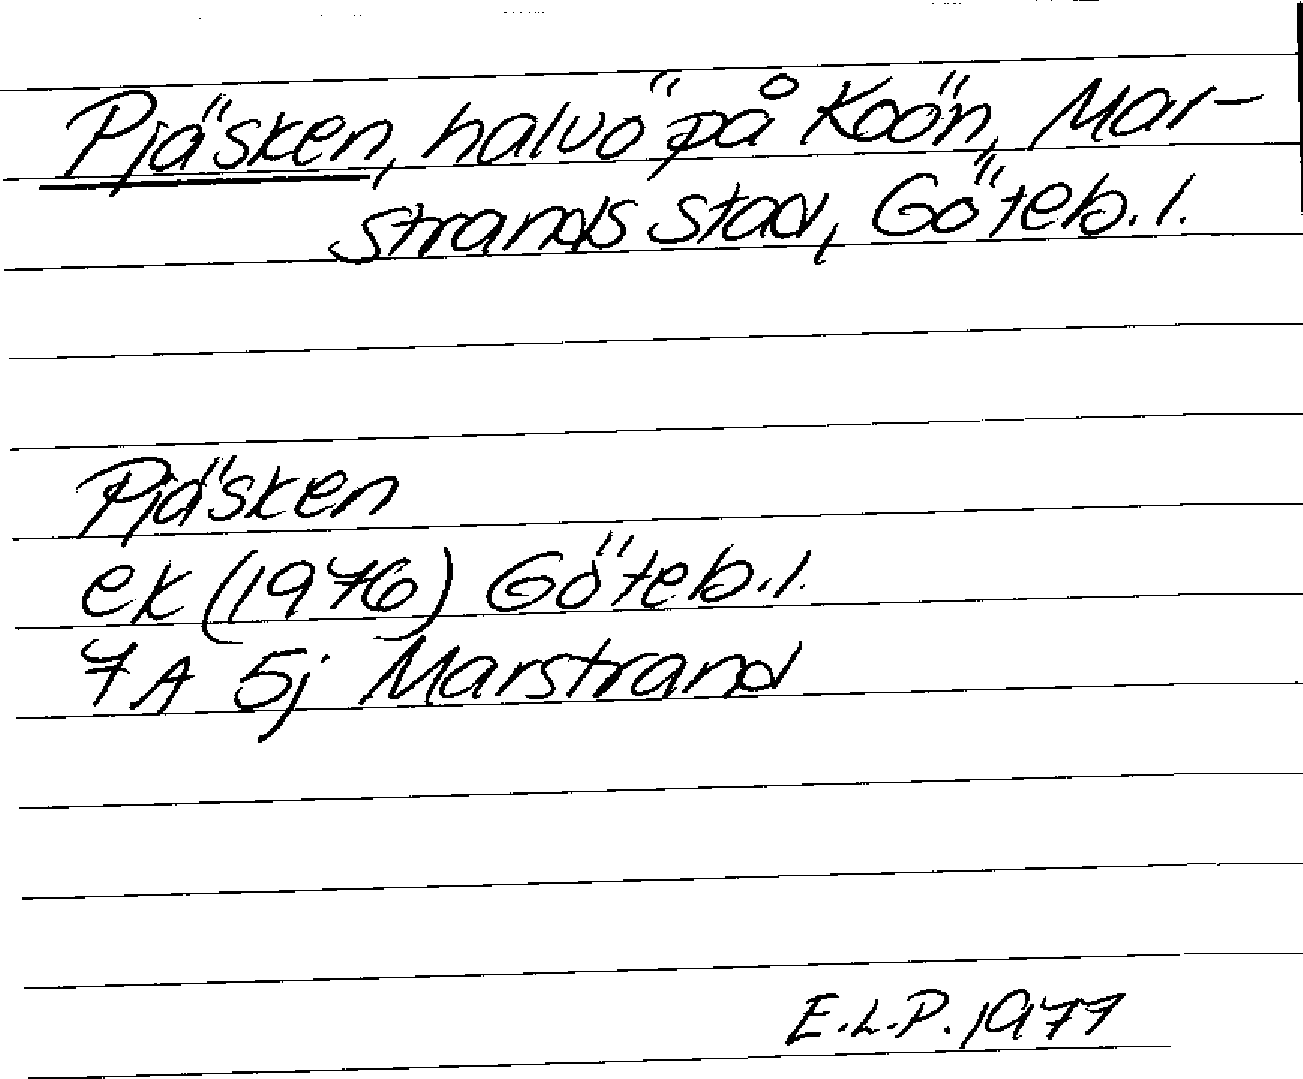 Pjäsken, halvö på Koön, Mar-
strands stad, Göteb. l.
Pjäsken
ek (1976) Göteb. l.
7A 5j Marstrand
E.L.P. 1977